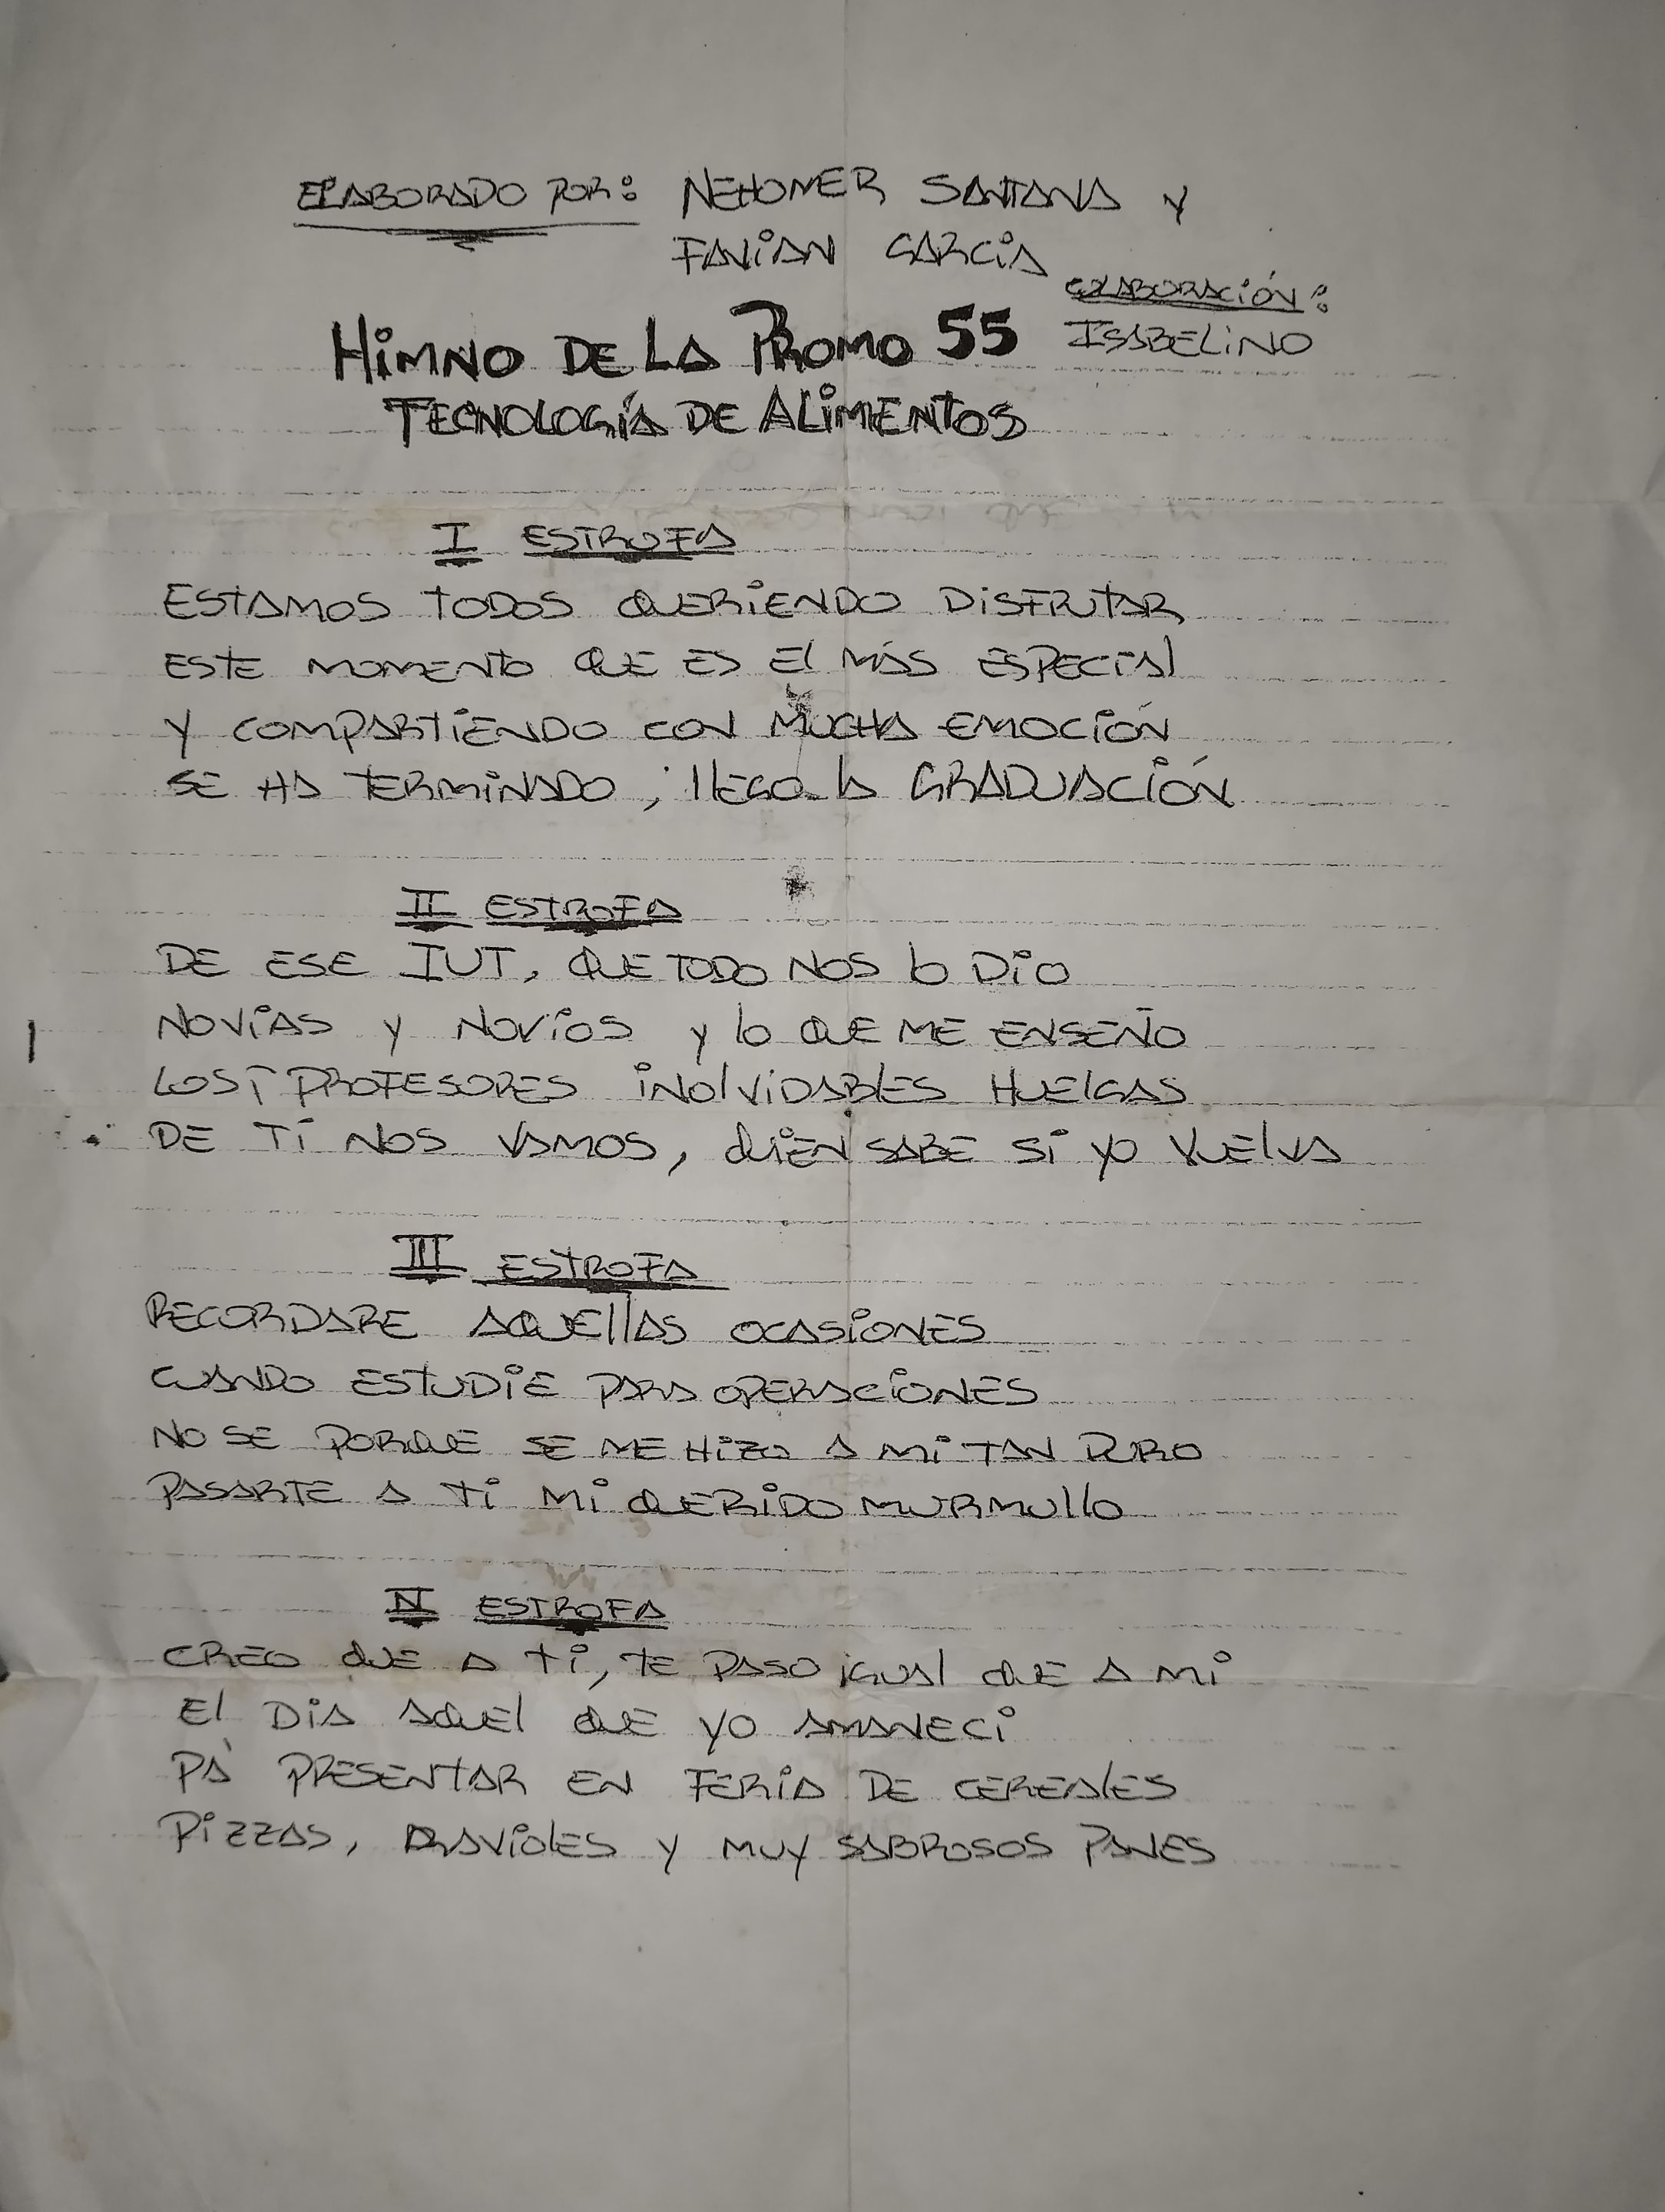 ELABORADO POR: NEHOMER SANTANA Y
FAVIAN GARCIA
COLABORACIÓN:
ISABELINO
HIMNO DE LA PROMO 55
TECNOLOGÍA DE ALIMENTOS
I ESTROFA
ESTAMOS TODOS QUERIENDO DISFRUTAR
ESTE MOMENTO QUE ES El MÁS ESPECIAl
Y COMPARTIENDO CON MUCHA EMOCIÓN
SE HA TERMINADO, llEGO lA GRADUACIÓN
II ESTROFA
DE ESE IUT, QUE TODO NOS lO DIO
NOVIAS Y NOVIOS Y lO QUE ME ENSEÑO
LOS PROFESORES INOlVIDABlES HUElGAS
DE TI NOS VAMOS, QUIEN SABE SI YO VUElVA
III ESTROFA
RECORDARE AQUEllAS OCASIONES
CUANDO ESTUDIE PARA OPERACIONES
NO SE PORQUE SE ME HIZO A MI TAN DURO
PASARTE A TI MI QUERIDO MURMULlO
IV ESTROFA
CREO QUE A TI, TE PASO IGUAl QUE A MI
El DIA AQUEl QUE YO AMANECI
PA' PRESENTAR EN FERIA DE CEREAlES
PIZZAS, RAVIOlES Y MUY SABROSOS PANES